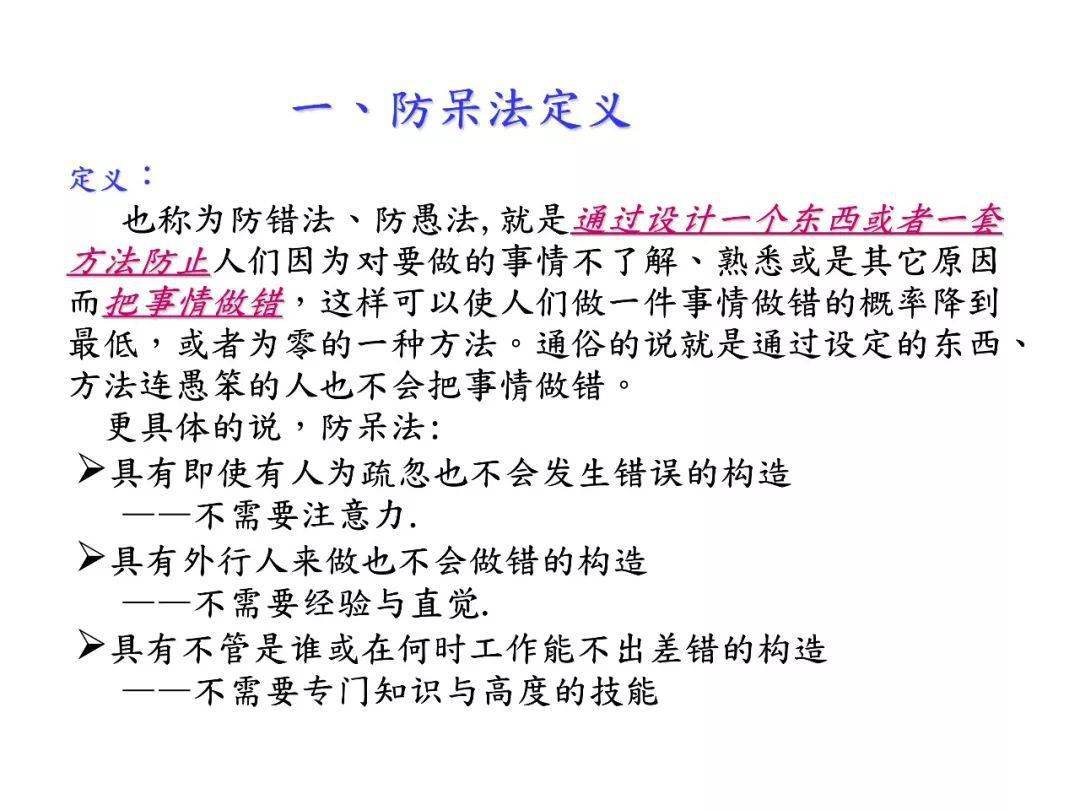 一、防呆法定义
定义：
也称为防错法、防愚法,就是通过设计一个东西或者一套
方法防止人们因为对要做的事情不了解、熟悉或是其它原因
而把事情做错，这样可以使人们做一件事情做错的概率降到
最低，或者为零的一种方法。通俗的说就是通过设定的东西、
方法连愚笨的人也不会把事情做错。
更具体的说，防呆法:
➢具有即使有人为疏忽也不会发生错误的构造
——不需要注意力.
➢具有外行人来做也不会做错的构造
——不需要经验与直觉.
➢具有不管是谁或在何时工作能不出差错的构造
——不需要专门知识与高度的技能